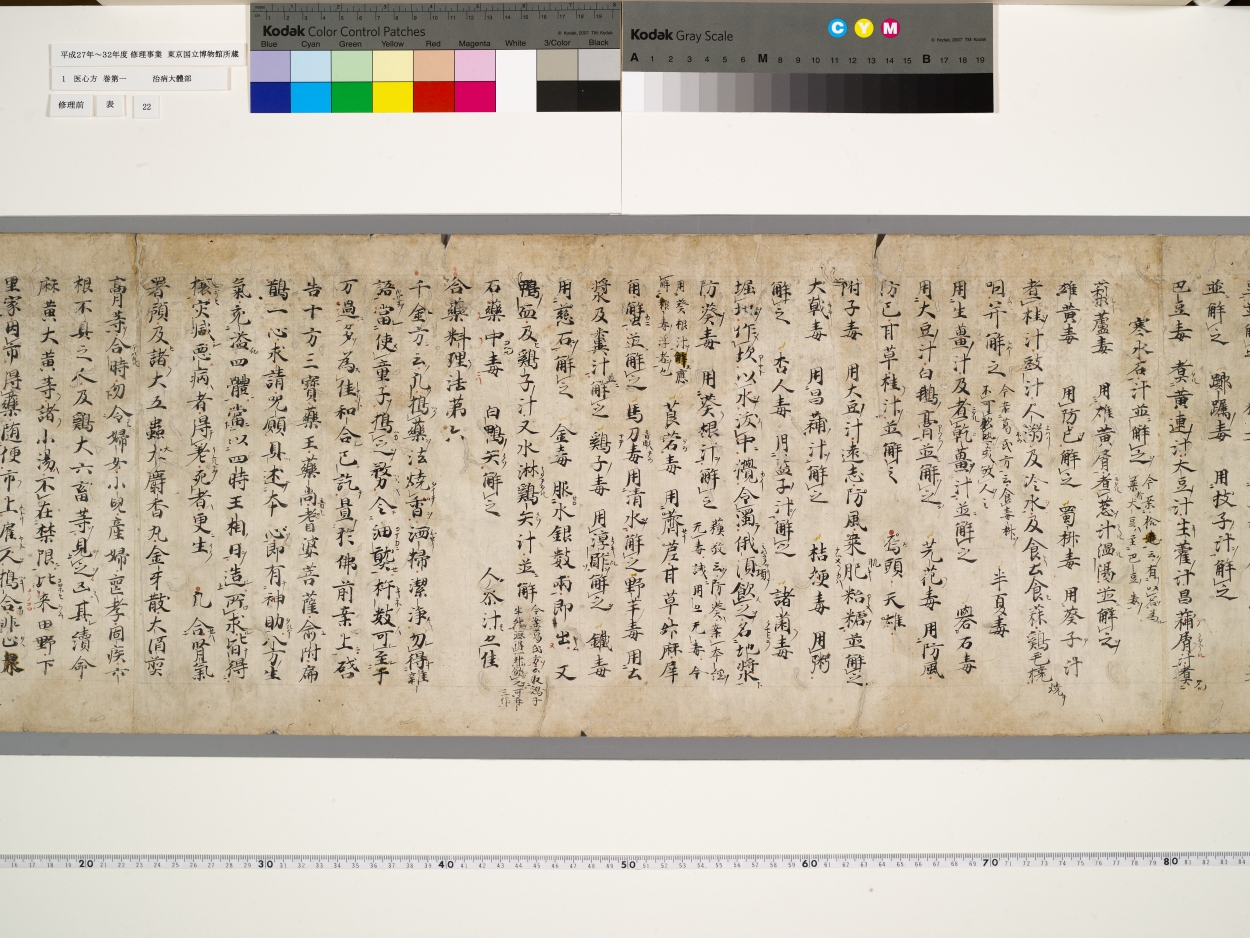 平成27年～32年度 修理事業 東京国立博物館所蔵
1 医心方 巻第一 治病大體部
修理前 表 22
Kodak Color Control Patches
© Kodak, 2007 TM: Kodak
Blue Cyan Green Yellow Red Magenta White 3/Color Black
Kodak Gray Scale
C Y M
© Kodak, 2007 TM: Kodak
A 1 2 3 4 5 6 M 8 9 10 11 12 13 14 15 B 17 18 19
並解之 躑躅毒 用枝子汁解之
巴豆毒 煮黄連汁大豆汁生藿汁昌蒲屑汁煮
寒水石汁並解之
藜蘆毒 用雄黄屑煮葱汁温湯並解之
雄黄毒 用防已解之 蜀椒毒 用葵子汁
煮桂汁豉汁人溺及冷水及食土食蒜鶏毛焼
咽并解之 半夏毒
用生薑汁及煮乾薑汁並解之 礜石毒
用大豆汁白鵝膏並解之 芫花毒 用防風
防已甘草桂汁並解之 烏頭 天雄
附子毒 用大豆汁遠志防風棗肥粘糖並解之
大戟毒 用昌蒲汁解之 桔梗毒 用粥
解之 杏人毒 用藍子汁解之 諸菌毒
堀地作坎以水沃中攪令濁俄頃飲之名地漿
防葵毒 用葵根汁解之
莨菪毒 用薺苨甘草升麻犀
角蟹並解之 馬刀毒用清水解之野芋毒 用土
漿及糞汁解之 鶏子毒 用淳酢解之 鐵毒
用慈石解之 金毒 服水銀數兩即出 又
鴨血及鶏子汁又水淋鶏矢汁並解
石藥中毒 白鴨矢解之 人参汁亦佳
合藥料理法第六
千金方云凡搗藥法焼香洒掃潔淨勿得雜
語當使童子搗之務令細軟杵數可至千
万過多為佳和合已訖置於佛前案上啓
告十方三寶藥王藥尚耆婆菩薩俞附扁
鵲一心求請呪願具述本心即有神助八方生
氣充溢四體當以四時王相日造所求皆得
攘灾滅惡病者得老死者更生 凡合腎氣
署預及諸大五蟲大麝香丸金牙散大酒煎
膏月等合時勿令婦女小兒産婦喪孝固疾六
根不具之人及鶏犬六畜等見之凶其續命
麻黄大黄等諸小湯不在禁限比来田野下
里家因市得藥随便市上雇人搗合非心
20 30 40 50 60 70 80